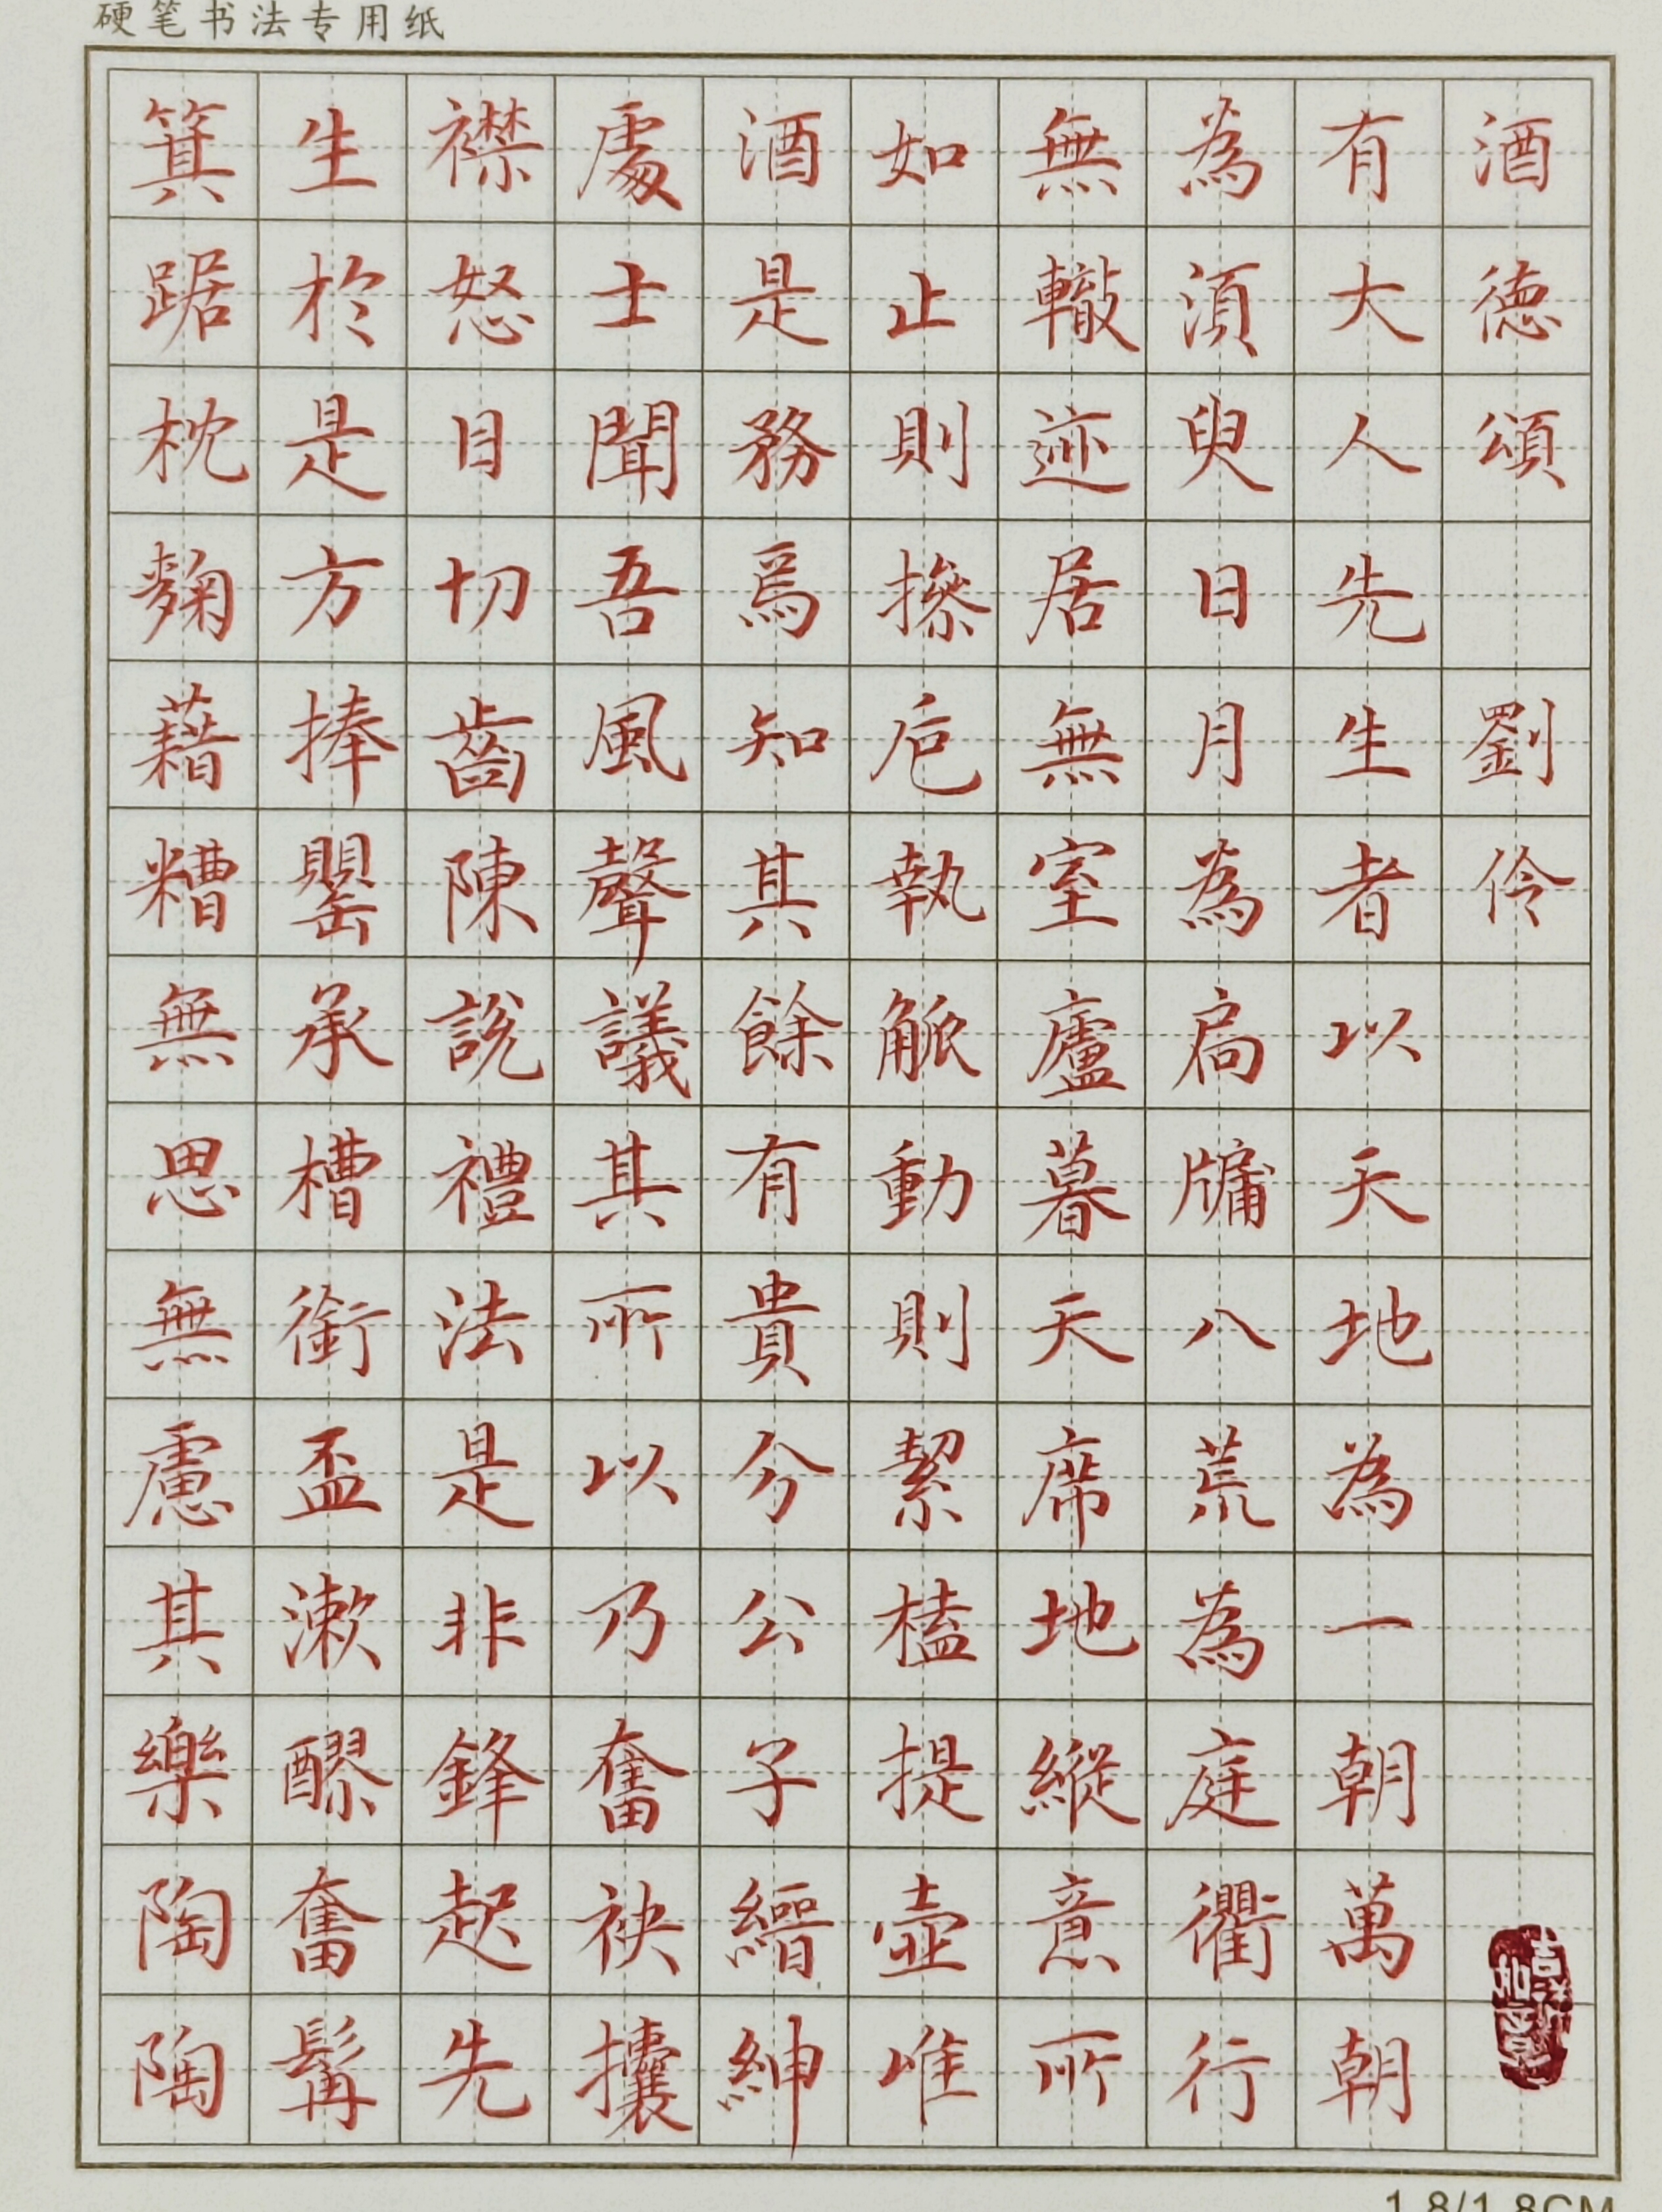 硬笔书法专用纸
酒德頌 劉伶
有大人先生者以天地為一朝萬朝
為湏臾日月為扃牖八荒為庭衢行
無轍迹居無室廬暮天席地縱意所
如止則操卮執觚動則絜榼提壺唯
酒是務焉知其餘有貴介公子縉紳
處士聞吾風聲議其所以乃奮袂攘
襟怒目切齒陳說禮法是非鋒起先
生於是方捧罌承槽銜盃漱醪奮髯
箕踞枕麴藉糟無思無慮其樂陶陶
吉祥如意
1.8/1.8CM